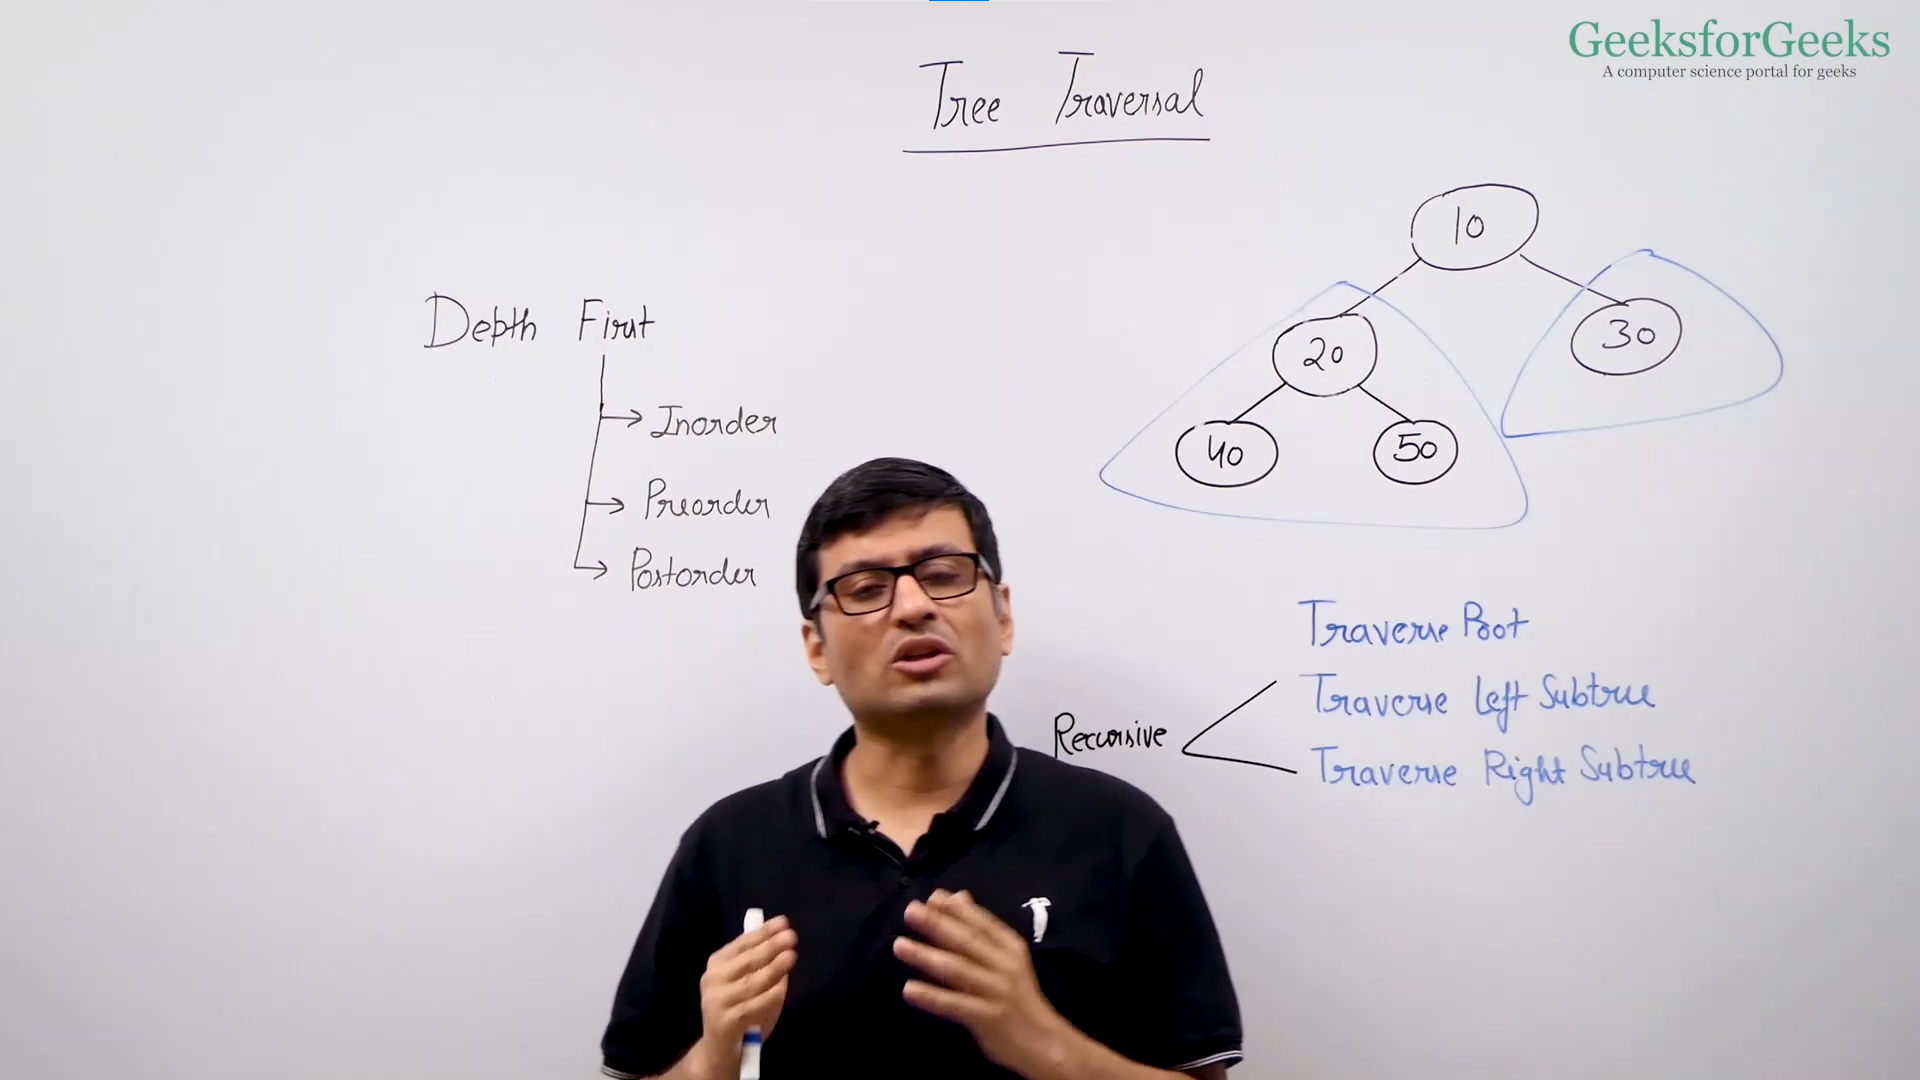 GeeksforGeeks
A computer science portal for geeks
Tree Traversal
Depth First
Inorder
Preorder
Postorder
10
20
30
40
50
Traverse Root
Traverse Left Subtree
Recursive
Traverse Right Subtree